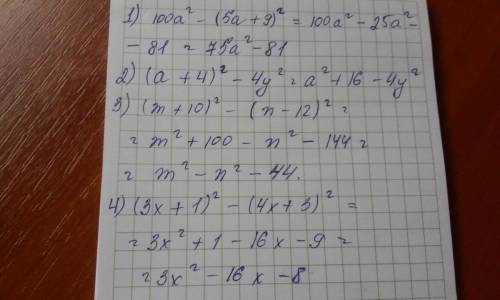 1) 100a² - (5a + 9)² = 100a² - 25a² -
- 81 = 75a² - 81
2) (a + 4)² - 4y² = a² + 16 - 4y²
3) (m + 10)² - (n - 12)² =
= m² + 100 - n² - 144 =
= m² - n² - 44.
4) (3x + 1)² - (4x + 3)² =
= 3x² + 1 - 16x - 9 =
= 3x² - 16x - 8